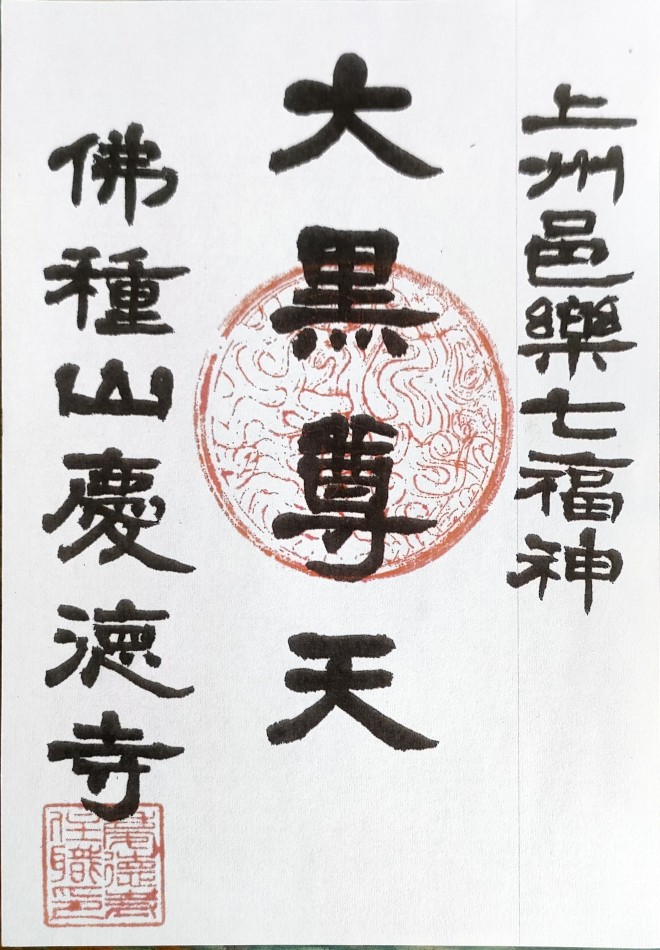 上州邑樂七福神
大黒尊天
佛種山慶徳寺
慶徳寺
住職印